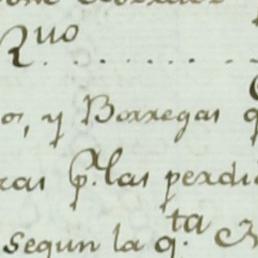 Quo
os, y Borregas
ras p.r las perdi
segun la q.ta